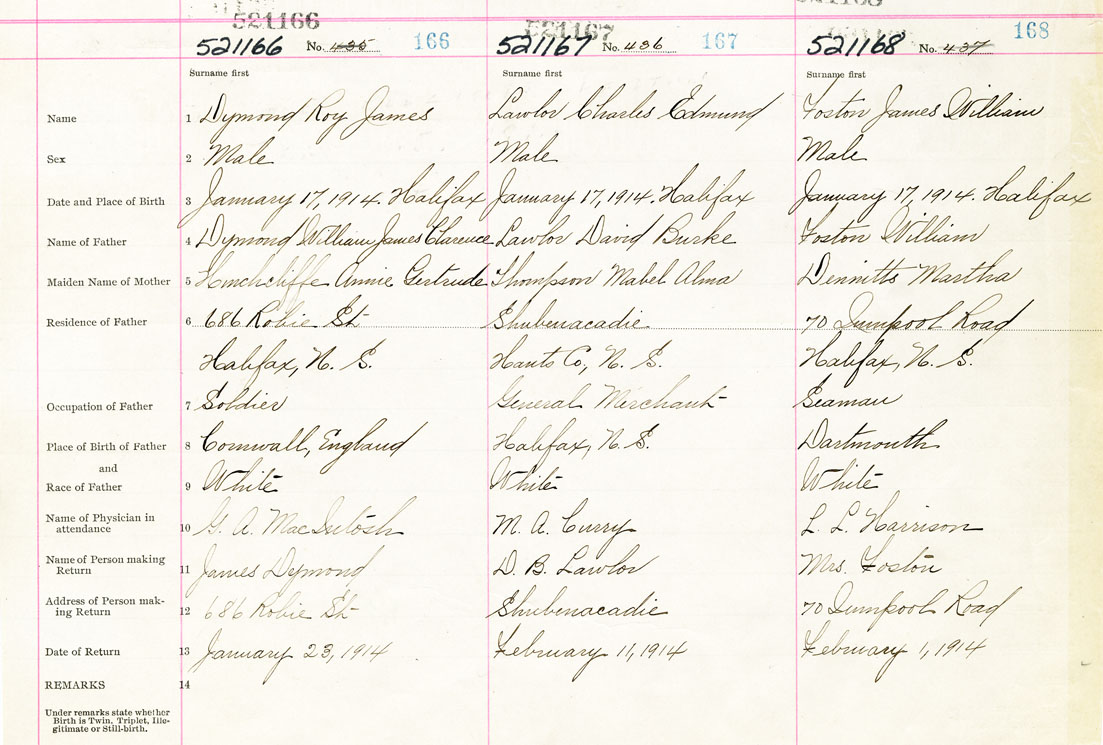 521166 521167
521166 No. 435 166 521167 No. 436 167 521168 No. 437 168
Surname first Surname first Surname first
Name 1 Dymond Roy James Lawlor Charles Edmund Foston James William
Sex 2 Male Male Male
Date and Place of Birth 3 January 17, 1914. Halifax January 17, 1914. Halifax January 17, 1914. Halifax
Name of Father 4 Dymond William James Clarence Lawlor David Burke Foston William
Maiden Name of Mother 5 Hinchcliffe Annie Gertrude Thompson Mabel Alma Dennitts Martha
Residence of Father 6 686 Robie St Shubenacadie 70 Road
Halifax, N. S. Hants Co, N. S. Halifax, N. S.
Occupation of Father 7 Soldier General Merchant Seaman
Place of Birth of Father 8 Cornwall, England Halifax, N. S. Dartmouth
and
Race of Father 9 White White White
Name of Physician in
attendance 10 G. A. MacIntosh M. A. Curry L. L. Harrison
Name of Person making
Return 11 James Dymond D. B. Lawlor Mrs. Foston
Address of Person mak-
ing Return 12 686 Robie St Shubenacadie 70 Road
Date of Return 13 January 23, 1914 February 11, 1914 February 1, 1914
REMARKS 14
Under remarks state whether
Birth is Twin, Triplet, Ille-
gitimate or Still-birth.